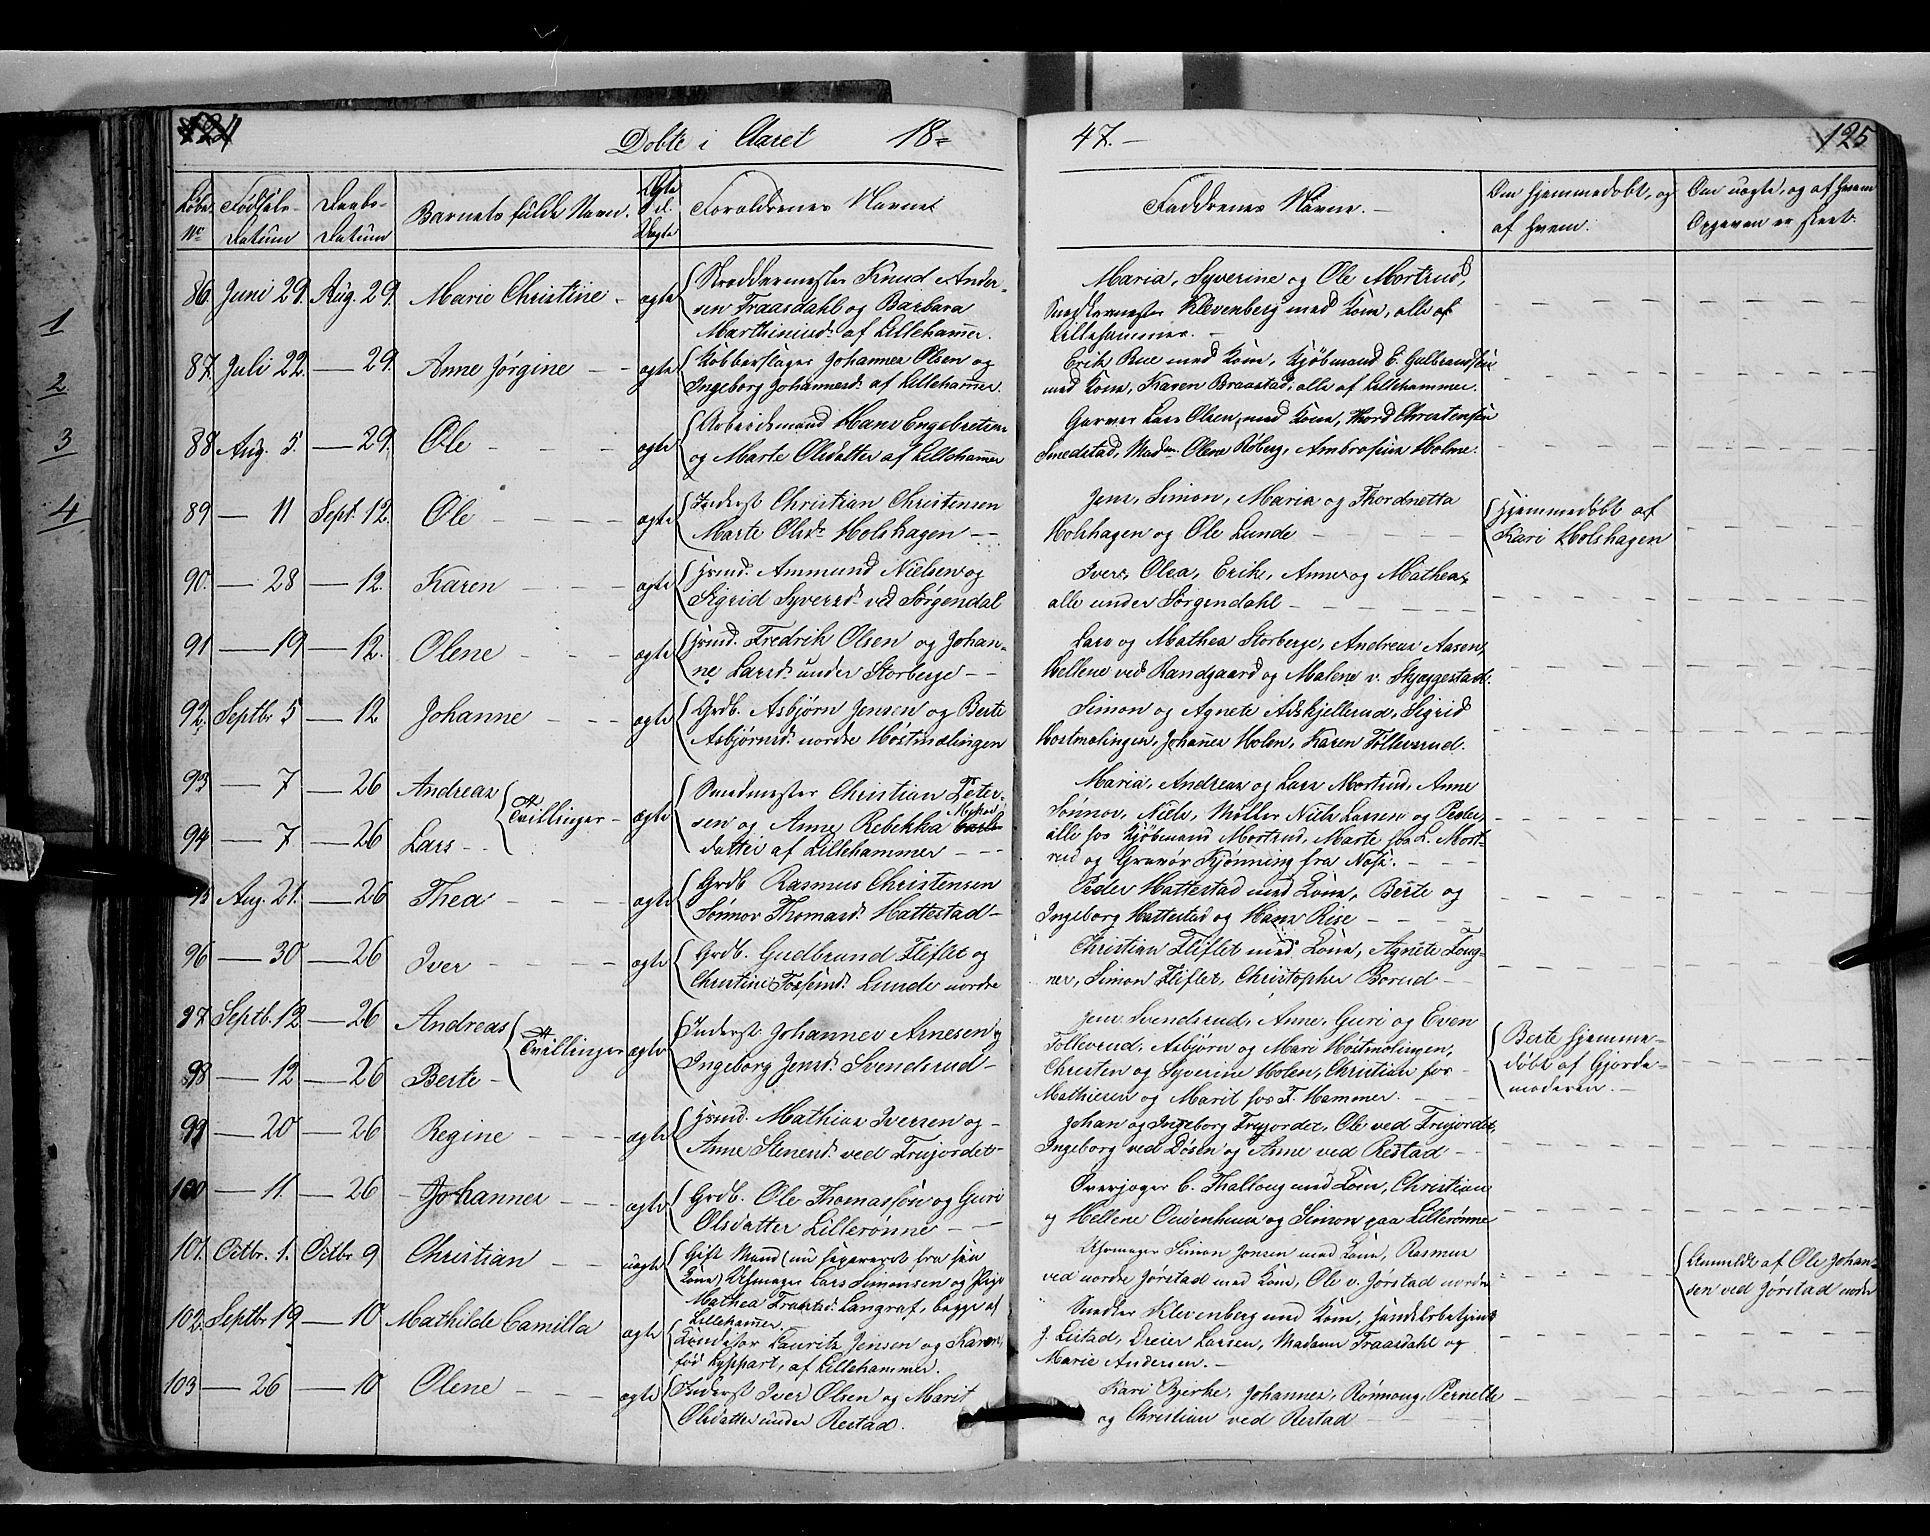 124 Døbte i Aaret 18- 47.- 125
Løbe No Fødsels-Datum Daabs-Datum Barnets fulde Navn. Ægte el. Uægte Forældrenes Navne Faddrenes Navne.- Om hjemmedøbt, og af hvem. Om uægte, og af hvem Opgaven er skeet.
86. Juni 29. Aug. 29. Marie Christine - ægte
Skreddermester Knud Ander-
sen Fraasdahl og Barbara
Marthinusd. af Lillehamer.
Maria, Syverine og Ole Mortrud,
Snedkermester Klevenberg med Kone, alle af
Lillehammer.-
87. Juli 22. - 29. Anne Jørgine - - ægte
Kobberslager Johannes Olsen og
Ingeborg Johannesd. af Lillehamer.
Erik Bue med Kone, Kjøbmand E. Gulbrandsen
med Kone, Karen Braastad, alle af Lillehammer.
88. Aug. 5. - 29. Ole - - - ægte
Arbeidsmand Hans Engebretsen
og Marte Olsdatter af Lillehamer
Garver Lars Olsen med Kone, Thord Christensen
Smedstad, Madm. Olene Roberg, Ambrosius Holme.
89 - 11 Sept. 12. Ole - - - - ægte
Inderst Christian Christensen
Marte Olsdr. Holshagen - -
Jens, Simon, Maria og Thordnetta
Holshagen og Ole Lunde - - -
Hjemmedøbt af
Kari Holshagen
90. - 28 - 12. Karen - - - ægte
Husmd. Ammund Nielsen og
Sigrid Syversd. ved Sørgendal
Iver, Olea, Erik, Anne og Mathea,
alle under Sørgendahl - - - -
91 - 19 - 12. Olene - - - ægte
Husmd. Fredrik Olsen og Johan-
ne Larsd. under Storberge - -
Lars og Mathea Storberge, Andreas Aasen,
Hellene ved Randgaard og Malene v. Skjæggestad.
92. Septbr 5 - 12 Johanne - - - ægte
Grdb. Asbjørn Jensen og Berte
Asbjørnsd. nordre Høstmælingen
Simon og Agnete Adskjellerud, Sigrid
Høstmælingen, Johanes Holen, Karen Tolleverud.
93 - 7 - 26 Andreas
94 - 7 - 26 Lars - - Tvillinger - ægte
Smedmester Christian Peter-
sen og Anne Rebekka
datter af Lillehammer - - -
Maria, Andreas og Lars Mortrud, Anne
Sønnov, Niels, Møller Niels Larsen og Peder,
alle hos Kjøbmand Mortrud, Marte hos L. Mort-
rud og Graver Kjønning fra
95 Aug. 21. - 26 Thea - - - ægte
Grdb Rasmus Christensen
Sønnov Thomasd. Hattestad -
Peder Hattestad med Kone, Berte og
Ingeborg Hattestad og Hans Rise - - -
96 - 30 - 26 Iver - - - ægte
Grdb. Gudbrand Fliflet og
Christine Lunde nordre
Christian Fliflet med Kone, Agnete Foug-
ner, Simon Fliflet, Christopher Borud -
97 Septb. 12 - 26 Andreas
98 - 12 - 26 Berte - Tvillinger ægte
Inderst Johannes Arnesen og
Ingeborg Jensd. Svendsrud -
Jens Svendsrud, Anne, Guri og Even
Tolleverud, Asbjørn og Mari Høstmælingen,
Christen og Syverine Holen, Christian hos
Mathiesen og Marit hos F. Hammer. -
Berte hjemme-
døbt af Gjorde-
moderen. -
99 - 20 - 26 Regine - - - ægte
Husmd. Mathias Iversen og -
Anne Stenersd. ved Frujordet -
Johan og Ingeborg Frujordet, Ole ved Frujordet,
Ingeborg ved Døsen og Anne ved Restad - -
100 - 11 - 26 Johannes - - - ægte
Grdb. Ole Thomassen og Guri
Olsdatter Lillerønne - - -
Overjæger C. Thalloug med Kone, Christian
og Hellene Oudenhuus og Simon paa Lillerønne
101. Octbr. 1. Octbr 9 Christian - - - uægte
Gift Mand (nu separeret fra sin
Kone) Uhrmager Lars Simonsen og Pige
Mathea Langraf, begge af
Lillehamer.
Uhrmager Simon Jensen med Kone, Rasmus
ved nordre Jørstad med Kone, Ole v. Jørstad nordre
Anmeldt af Ole Johan-
sen ved Jørstad nordre
102. Septbr 19 - 10 Mathilde Camilla ægte
Conditor Lauritz Jensen og Karen,
fød Lyppart, af Lillehammer.
Snedker Klevenberg med Kone,
J. Listad, Dreier Larsen, Madame Fraasdahl og
Marie Andersen. -
103 - 26 - 10 Olene - - - ægte
Inderst Iver Olsen og Marit
Olsdatter under Restad.
Kari Bjerke, Johannes, Rønnoug, Pernelle
og Christian ved Restad
1
2
3
4